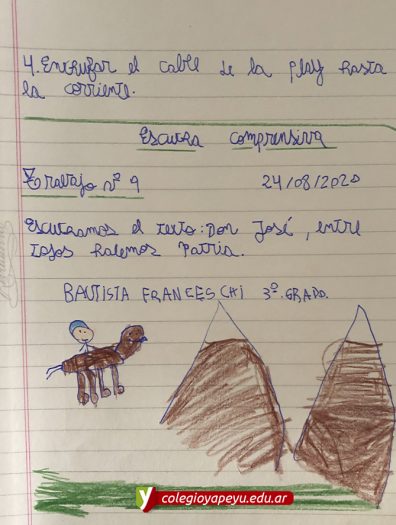 4. Enchufar el cable de la play hasta
la corriente.
Escucha comprensiva
Trabajo nº 9
24/08/2020
Escuchamos el texto: Don José, entre
todos hacemos Patria.
BAUTISTA FRANCESCHI 3º.GRADO.
y colegioyapeyu.edu.ar